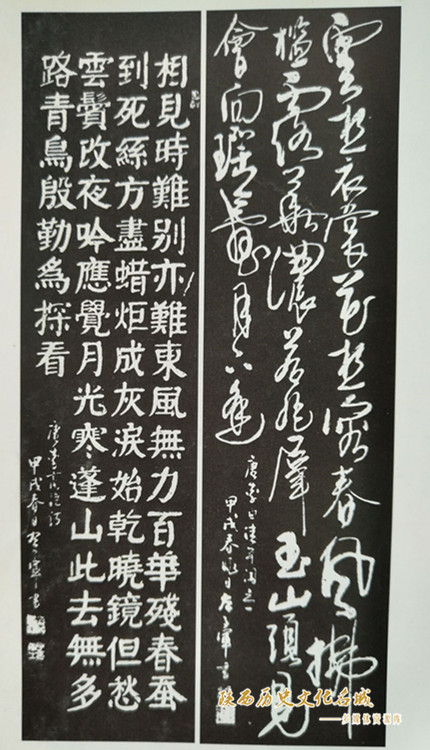 雲想衣裳花想容春風拂
檻露華濃若非群玉山頭見
會向瑤臺月下逢
唐李白清平调之一
甲戌春
相見時難别亦難東風無力百華残春蚕
到死絲方盡蜡炬成灰淚始乾曉鏡但愁
雲鬢改夜吟應覺月光寒蓬山此去無多
路青鳥殷勤為探看
唐李商隐诗
甲戌春日
陕西历史文化名城
——多媒体资源库